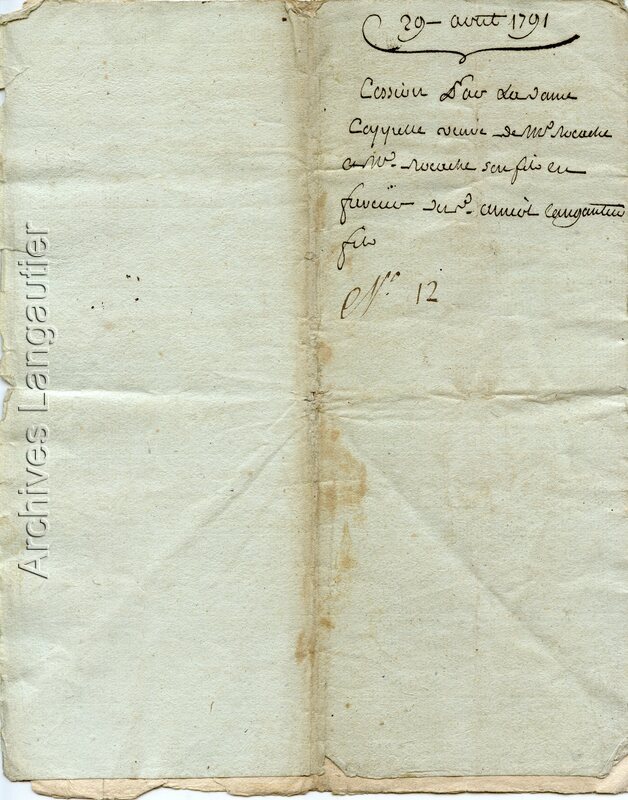 29 - avril 1791
Cession par La dame
Cappelle veuve de Mr. Rocache
et Mr. Rocache son fils en
faveur du Sr. Langautier
fils
No. 12
Archives Langautier